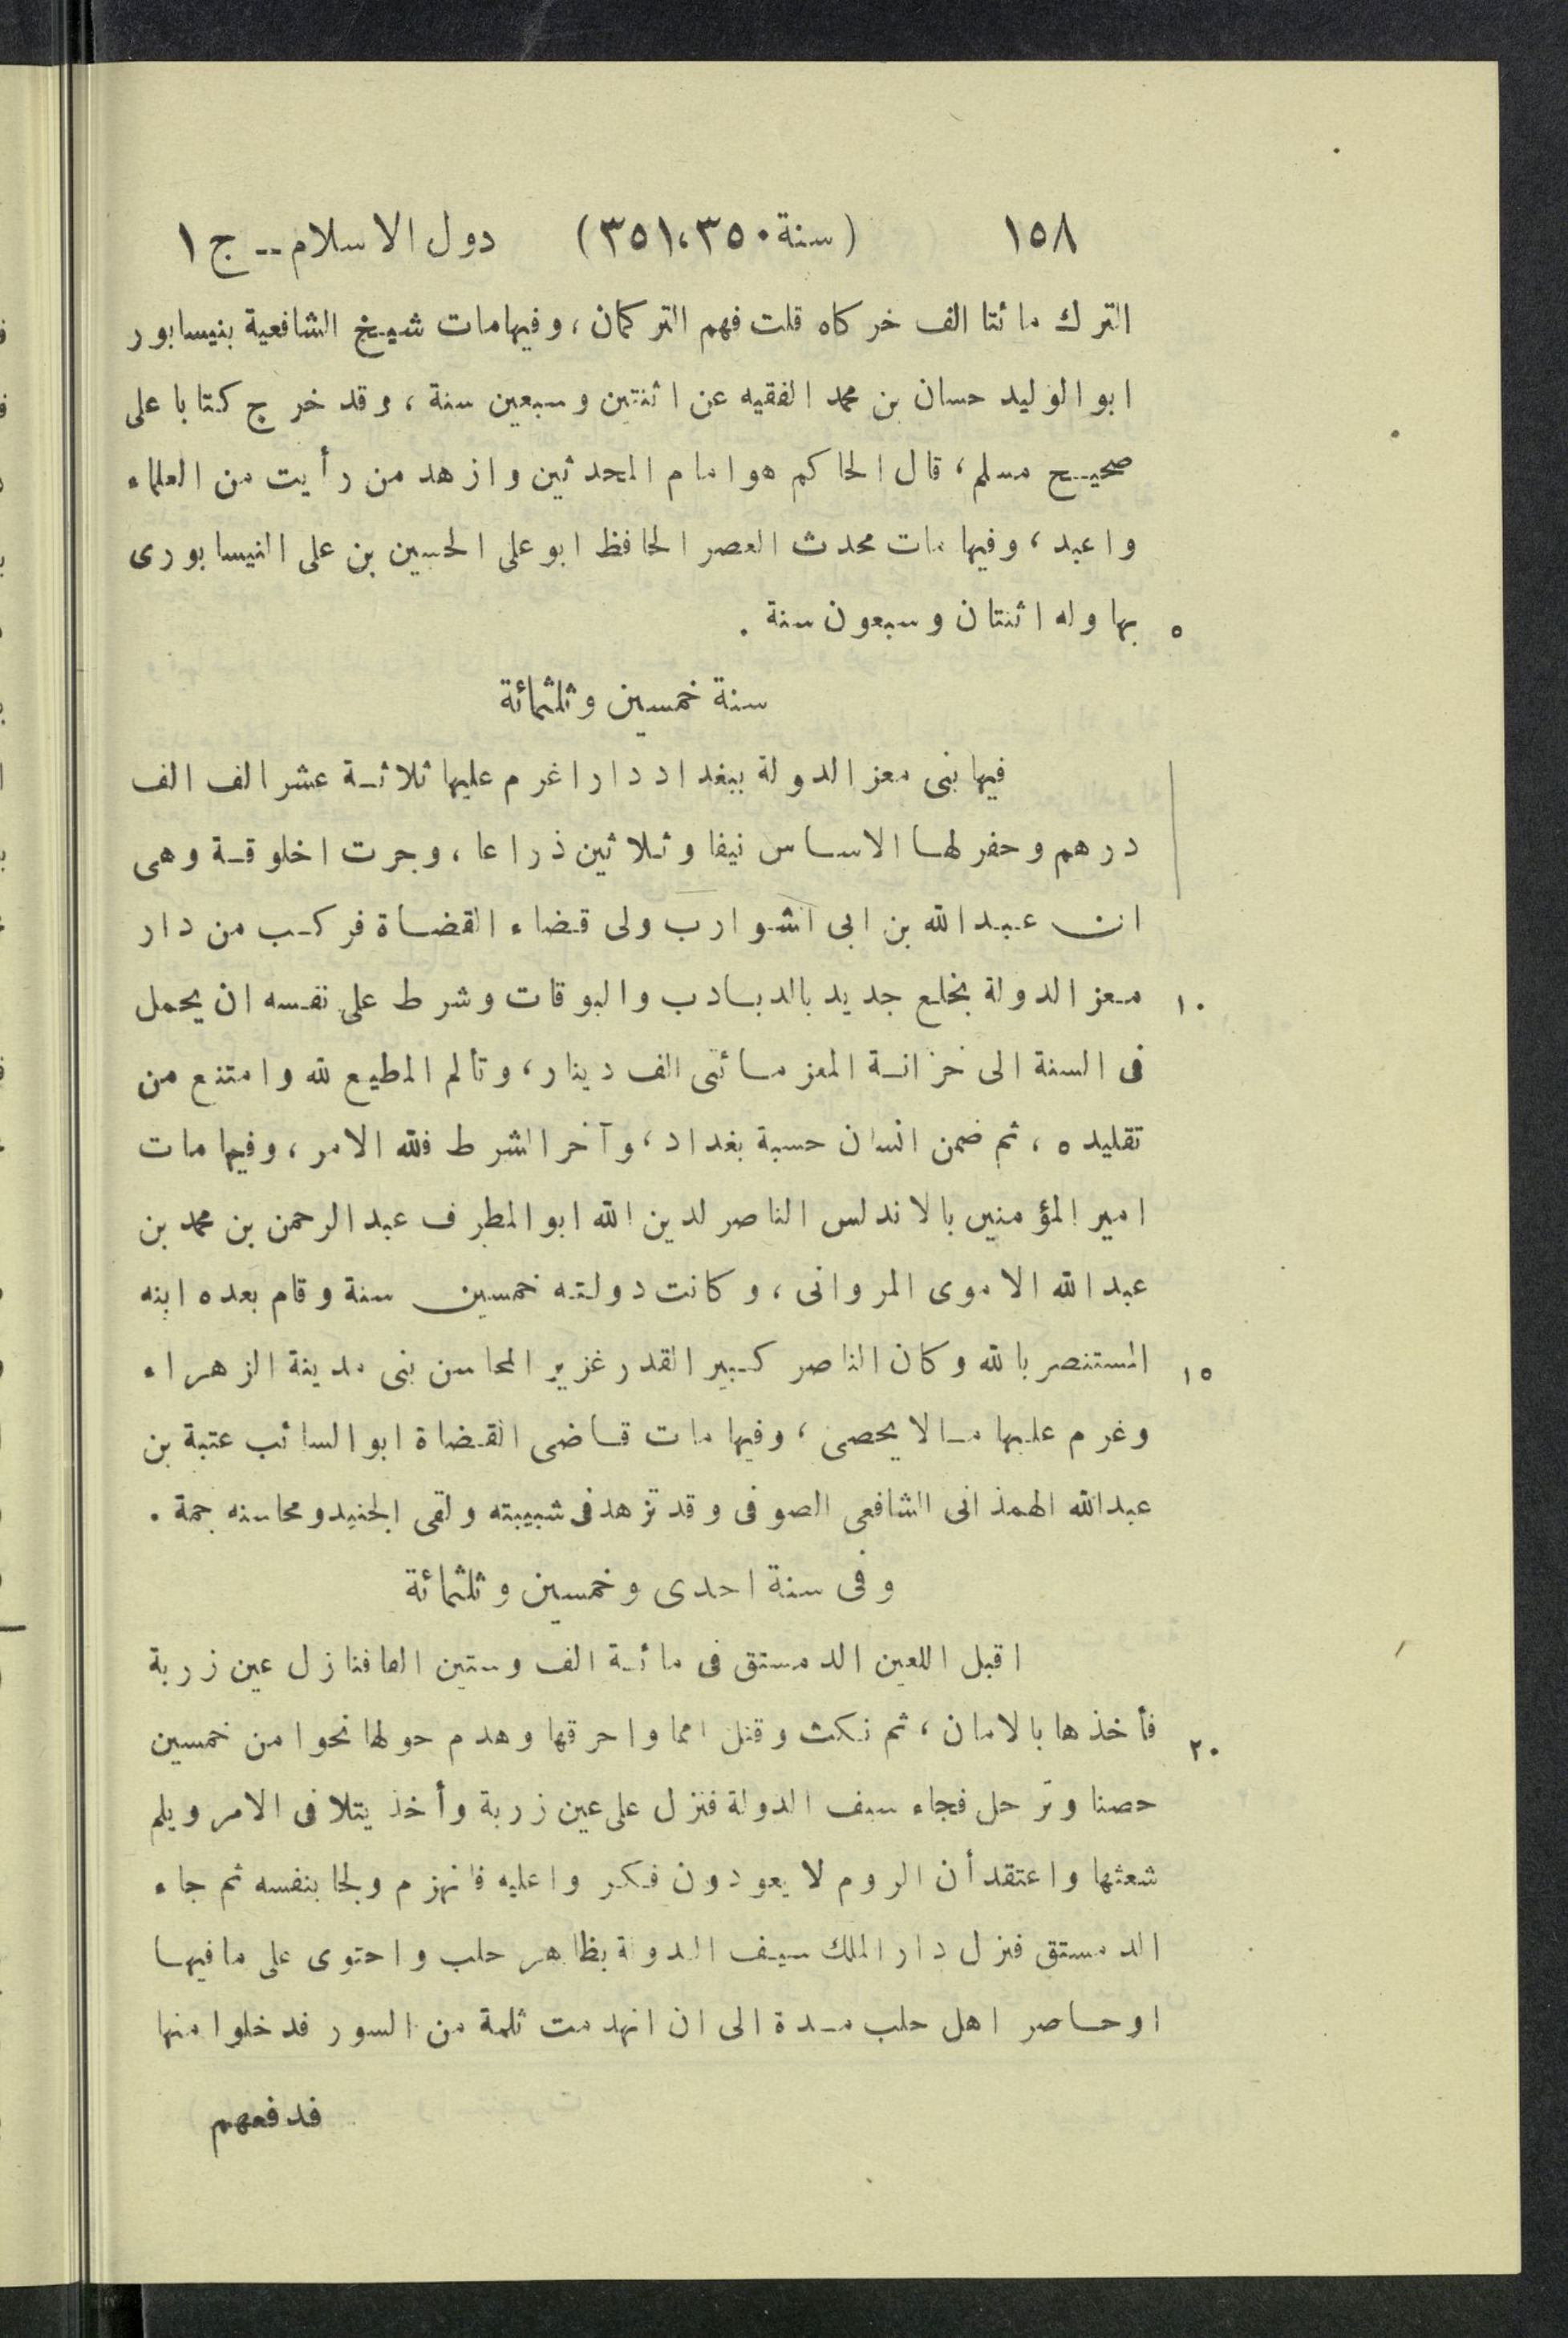 ١٥٨ (سنة ٣٥٠،٣٥١) دول الاسلام -- ج ١
الترك مائتا الف خركاه قلت فهم التركمان، وفيها مات شيخ الشافعية بنيسابور
ابو الوليد حسان بن محمد الفقيه عن اثنتين وسبعين سنة، وقد خرج كتابا على
صحيح مسلم، قال الحاكم هو امام المحدثين وازهد من رأيت من العلماء
واعبد، وفيها مات محدث العصر الحافظ ابو على الحسين بن على النيسابورى
٥ بها وله اثنتان وسبعون سنة .
سنة خمسين وثلثمائة
فيها بنى معز الدولة ببغداد دارا غرم عليها ثلاثة عشر الف الف
درهم وحفر لها الاساس نيفا وثلاثين ذراعا، وجرت اخلوقة وهى
ان عبد الله بن ابى الشوارب ولى قضاء القضاة فركب من دار
١٠ معز الدولة بخلع جديد بالدبادب والبوقات وشرط على نفسه ان يحمل
فى السنة الى خزانة المعز مائتى الف دينار، وتألم المطيع لله وامتنع من
تقليده، ثم ضمن انسان حسبة بغداد، وآخر الشرط فلله الامر، وفيها مات
امير المؤمنين بالاندلس الناصر لدين الله ابو المطرف عبد الرحمن بن محمد بن
عبد الله الاموى المروانى، وكانت دولته خمسين سنة وقام بعده ابنه
١٥ المستنصر بالله وكان الناصر كبير القدر غزير المحاسن بنى مدينة الزهراء
وغرم عليها مالا يحصى، وفيها مات قاضى القضاة ابو السائب عتبة بن
عبد الله الهمذانى الشافعى الصوفى وقد تزهد فى شبيبته ولقى الجنيد ومحاسنه جمة .
وفى سنة احدى وخمسين وثلثمائة
اقبل اللعين الدمستق فى مائة الف وستين الفا فنازل عين زربة
٢٠ فأخذها بالامان، ثم نكث وقتل امما واحرقها وهدم حولها نحوا من خمسين
حصنا وترحل فجاء سيف الدولة فنزل على عين زربة وأخذ يتلافى الامر ويلم
شعثها واعتقد أن الروم لا يعودون فكروا عليه فانهزم ولجا بنفسه ثم جاء
الدمستق فنزل دار الملك سيف الدولة بظاهر حلب واحتوى على ما فيها
اوحاصر اهل حلب مدة الى ان انهدمت ثلمة من السور فدخلوا منها
فدفعهم